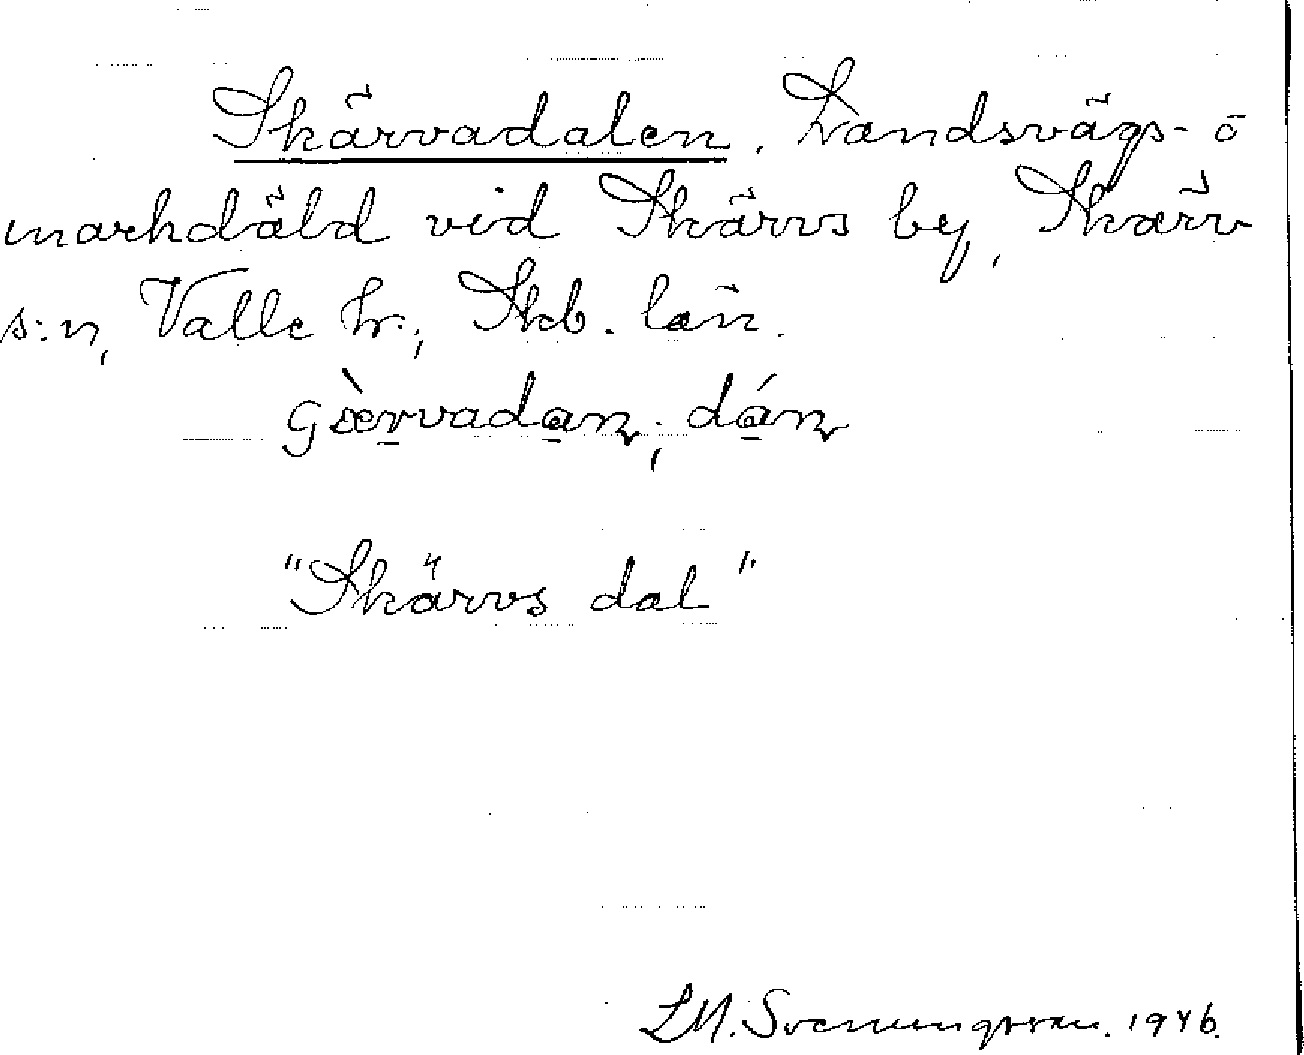 Skärvadalen. Landsvägs- o
markdäld vid Skärvs by, Skärv
s:n, Valle hr., Skb. län.
"Skärvs dal"
L.M. Svenungsson. 1946.